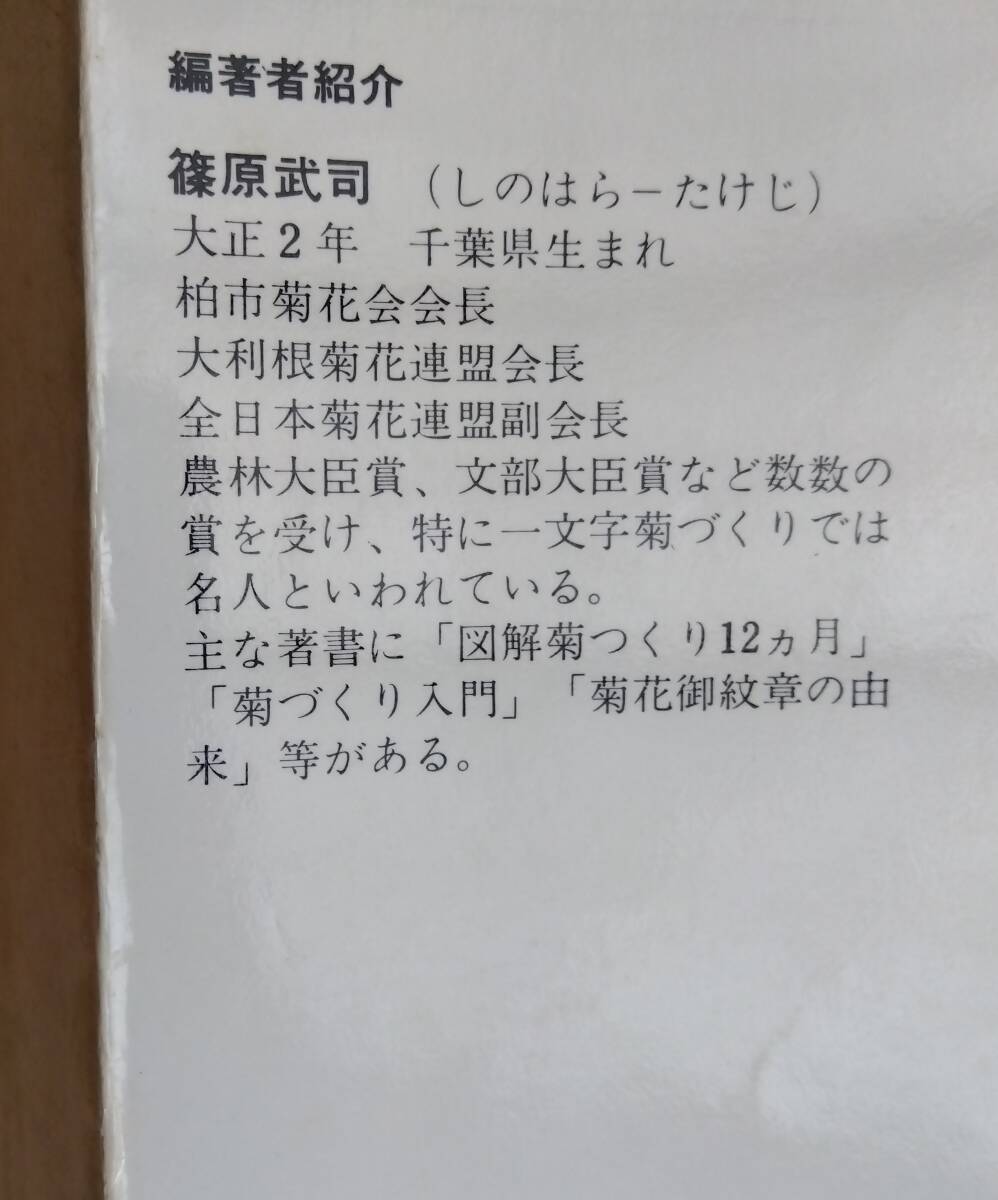 編著者紹介
篠原武司　（しのはら－たけじ）
大正2年　千葉県生まれ
柏市菊花会会長
大利根菊花連盟会長
全日本菊花連盟副会長
農林大臣賞、文部大臣賞など数数の
賞を受け、特に一文字菊づくりでは
名人といわれている。
主な著書に「図解菊つくり12ヵ月」
「菊づくり入門」「菊花御紋章の由
来」等がある。